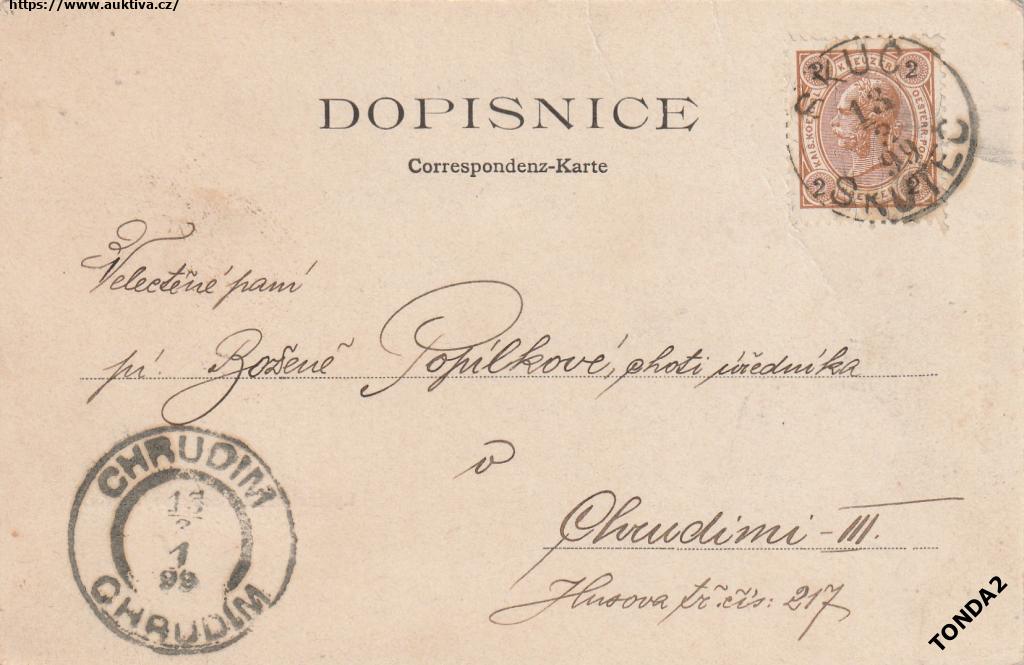 https://www.auktiva.cz/
DOPISNICE
Correspondenz-Karte
2 KREUZER 2
SKUČ
13
3
99
SKUTEČ
2 2
Velectěné paní
pí. Boženě Popílkové, choti úředníka
v
Chrudimi - III.
Husova tř. čís: 217
CHRUDIM
13
3
1
99
CHRUDÍM
TONDA2